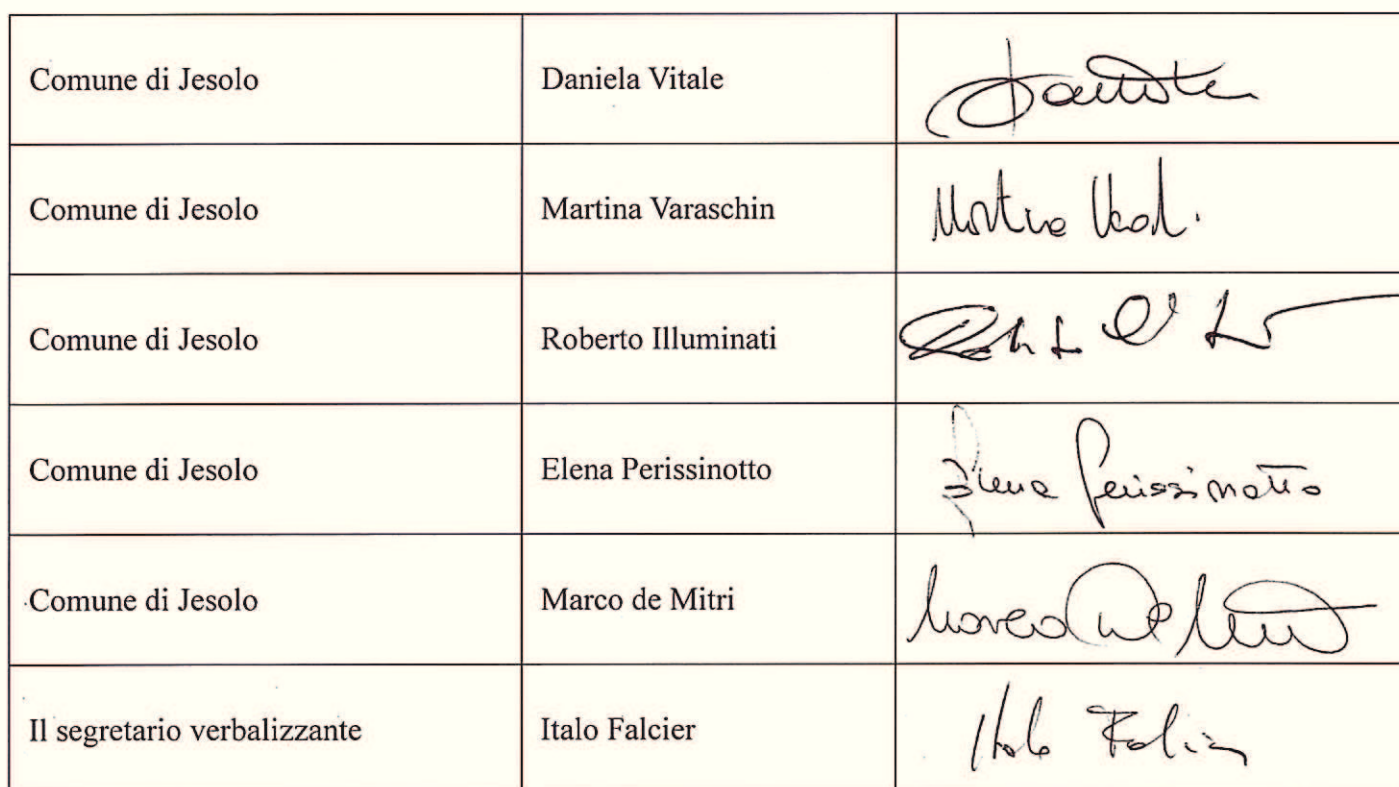 Comune di Jesolo Daniela Vitale
Comune di Jesolo Martina Varaschin
Comune di Jesolo Roberto Illuminati
Comune di Jesolo Elena Perissinotto Elena Perissinotto
Comune di Jesolo Marco de Mitri
Il segretario verbalizzante Italo Falcier